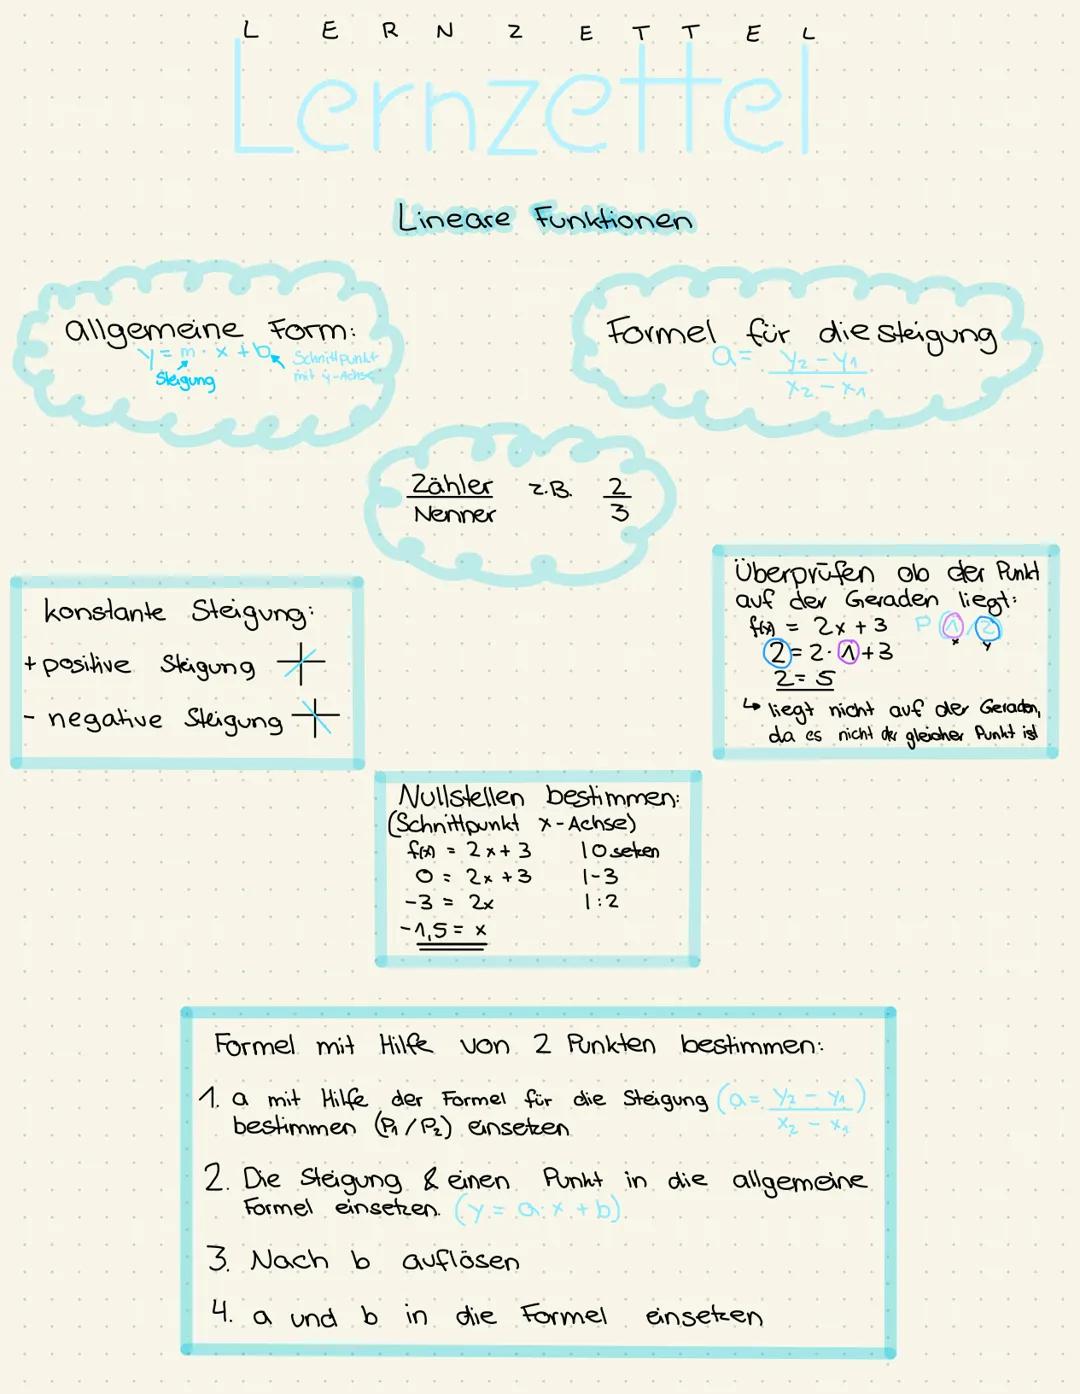 L E R N Z E T T E L
Lernzettel
Lineare Funktionen
allgemeine Form:
y = m · x + b
Steigung
Schnittpunkt
mit y-Achse
Formel für die steigung
a = y₂ - y₁
x₂ - x₁
Zähler z.B. 2
Nenner 3
konstante Steigung:
+ positive Steigung
- negative Steigung
Überprüfen ob der Punkt
auf der Geraden liegt:
f(x) = 2x + 3 P (1/2)
x y
2 = 2 · 1 + 3
2 = 5
↳ liegt nicht auf der Geraden,
da es nicht der gleicher Punkt ist
Nullstellen bestimmen:
(Schnittpunkt x-Achse)
f(x) = 2x + 3 | 0 setzen
0 = 2x + 3 | -3
-3 = 2x | :2
-1,5 = x
Formel mit Hilfe von 2 Punkten bestimmen:
1. a mit Hilfe der Formel für die Steigung (a = y₂ - y₁)
x₂ - x₁
bestimmen (P₁ / P₂) einsetzen
2. Die Steigung & einen Punkt in die allgemeine
Formel einsetzen. (y = a · x + b).
3. Nach b auflösen
4. a und b in die Formel einsetzen